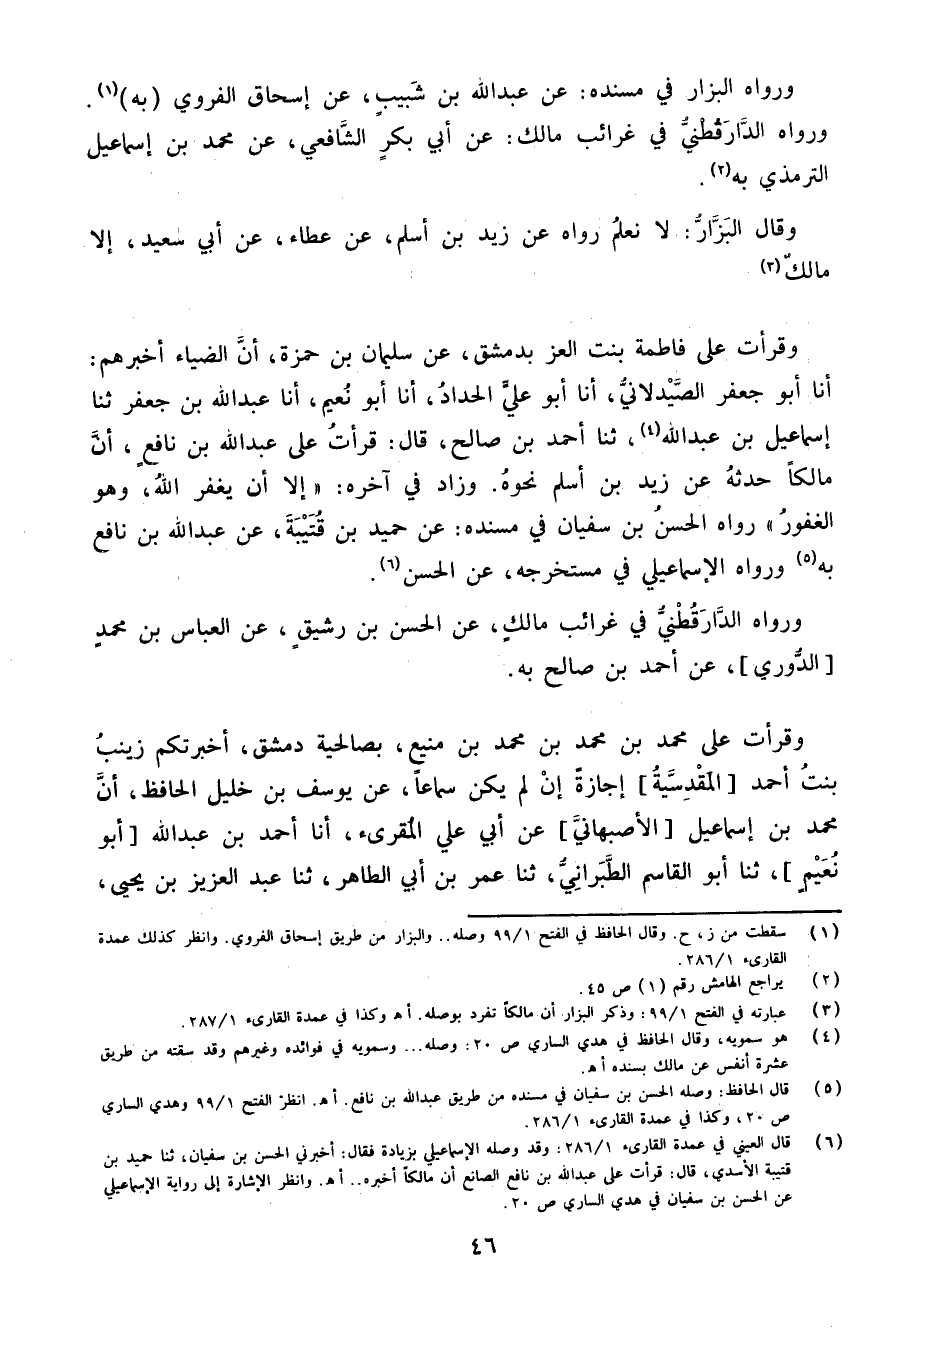 ورواه البزار في مسنده: عن عبدالله بن شَبيبٍ، عن إسحاق الفروي (به)(١).
ورواه الدَّارَقُطْنيُّ في غرائب مالك: عن أبي بكرٍ الشَّافعي، عن محمد بن إسماعيل
الترمذي به(٢).
وقال البَزَّارُ: لا نعلمُ رواه عن زيد بن أسلم، عن عطاء، عن أبي سعيد، إلا
مالكٌ(٣)
وقرأت على فاطمة بنت العز بدمشق، عن سليمان بن حمزة، أنَّ الضياء أخبرهم:
أنا أبو جعفر الصَّيْدلانيُّ، أنا أبو عليٍّ الحدادُ، أنا أبو نُعيم، أنا عبدالله بن جعفر ثنا
إسماعيل بن عبدالله(٤)، ثنا أحمد بن صالح، قال: قرأتُ على عبدالله بن نافعٍ، أنَّ
مالكاً حدثهُ عن زيد بن أسلم نحوهُ. وزاد في آخره: «إلا أن يغفر اللهُ، وهو
الغفورُ» رواه الحسنُ بن سفيان في مسنده: عن حميد بن قُتَيْبَةَ، عن عبدالله بن نافع
به(٥) ورواه الإسماعيلي في مستخرجه، عن الحسن(٦).
ورواه الدَّارَقُطْنيُّ في غرائب مالكٍ، عن الحسن بن رشيقٍ، عن العباس بن محمدٍ
[الدُّوري]، عن أحمد بن صالح به.
وقرأت على محمد بن محمد بن محمد بن منيع، بصالحية دمشق، أخبرتكم زينبُ
بنتُ أحمد [المَقْدِسيَّةُ] إجازةً إنْ لم يكن سماعاً، عن يوسف بن خليل الحافظ، أنَّ
محمد بن إسماعيل [الأصبهانيَّ] عن أبي علي المُقرىء، أنا أحمد بن عبدالله [أبو
نُعَيْمٍ]، ثنا أبو القاسم الطَّبَرانيُّ، ثنا عمر بن أبي الطاهر، ثنا عبد العزيز بن يحيى،
(١) سقطت من ز، ح. وقال الحافظ في الفتح ٩٩/١ وصله.. والبزار من طريق إسحاق الفروي. وانظر كذلك عمدة
القارىء ٢٨٦/١.
(٢) يراجع الهامش رقم (١) ص ٤٥.
(٣) عبارته في الفتح ٩٩/١: وذكر البزار أن مالكاً تفرد بوصله. أ ه وكذا في عمدة القارىء ٢٨٧/١.
(٤) هو سمويه، وقال الحافظ في هدي الساري ص ٢٠: وصله... وسمويه في فوائده وغيرهم وقد سقته من طريق
عشرة أنفس عن مالك بسنده أ ه.
(٥) قال الحافظ: وصله الحسن بن سفيان في مسنده من طريق عبدالله بن نافع. أ ه. انظر الفتح ٩٩/١ وهدي الساري
ص ٢٠، وكذا في عمدة القارىء ٢٨٦/١.
(٦) قال العيني في عمدة القارىء ٢٨٦/١: وقد وصله الإسماعيلي بزيادة فقال: أخبرني الحسن بن سفيان، ثنا حميد بن
قتيبة الأسدي، قال: قرأت على عبدالله بن نافع الصانع أن مالكاً أخبره.. أ ه. وانظر الإشارة إلى رواية الإسماعيلي
عن الحسن بن سفيان في هدي الساري ص ٢٠.
٤٦